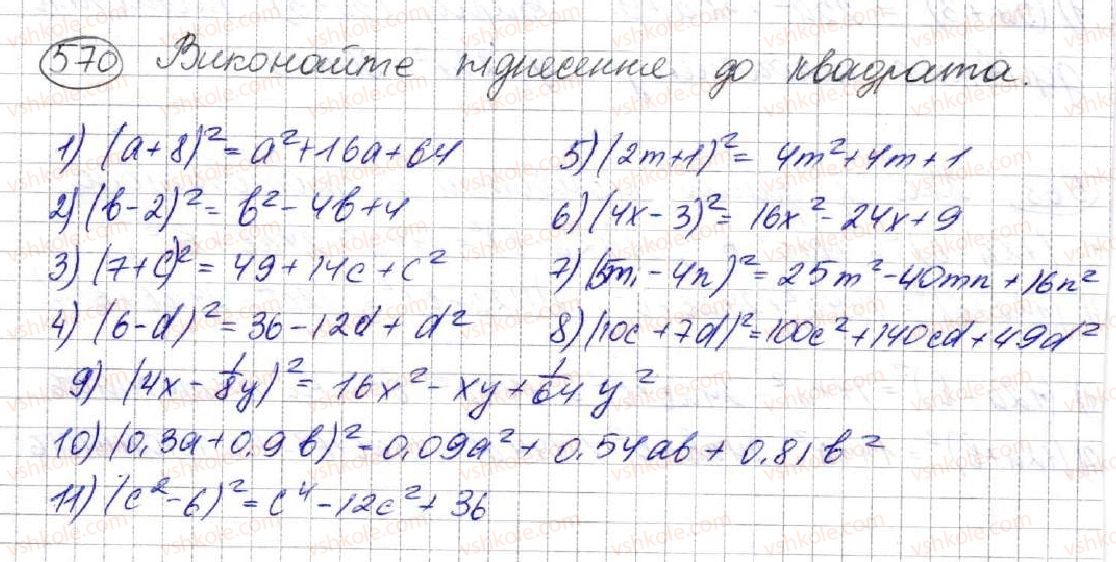 570 Виконайте піднесення до квадрата.
1) (a+8)²= a²+16a+64
2) (b-2)²= b²-4b+4
3) (7+c)²= 49+14c+c²
4) (6-d)²= 36-12d+d²
5) (2m+1)²= 4m²+4m+1
6) (4x-3)²= 16x²-24x+9
7) (5m-4n)²= 25m²-40mn+16n²
8) (10c+7d)²=100c²+140cd+49d²
9) (4x- 1/8 y)²= 16x²-xy+ 1/64 y²
10) (0,3a+0,9b)²=0,09a²+0,54ab+0,81b²
11) (c²-6)²= c⁴-12c²+36